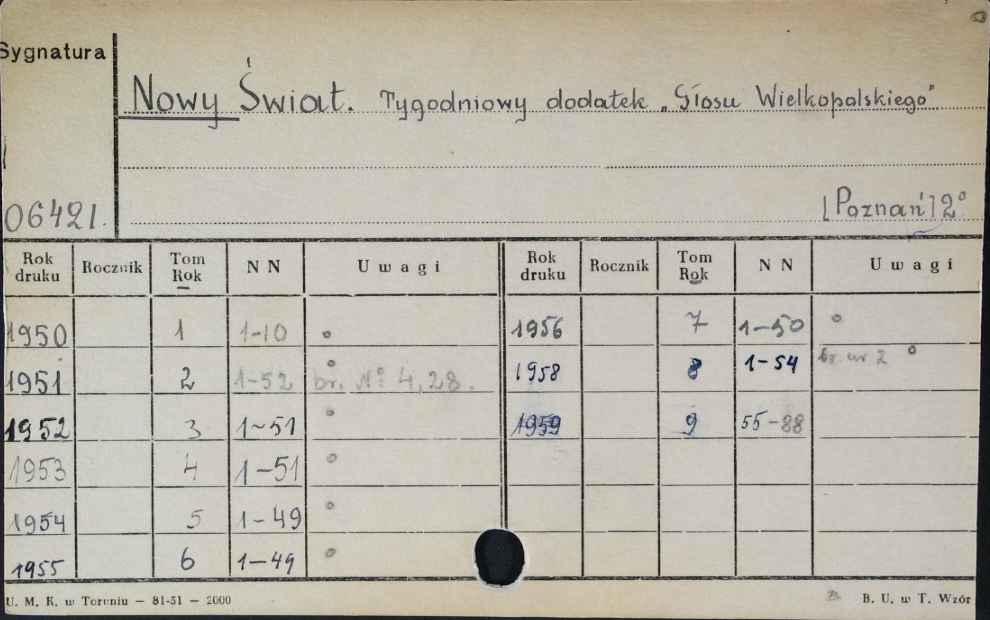 Sygnatura
Nowy Świat. Tygodniowy dodatek „Głosu Wielkopolskiego"
06421.
[Poznań] 2°
Rok druku Rocznik Tom Rok NN Uwagi Rok druku Rocznik Tom Rok NN Uwagi
1950 1 1-10 ° 1956 7 1-50 °
1951 2 1-52 br. No 4, 28. ° 1958 8 1-54 br. nr 2 °
1952 3 1-51 ° 1959 9 55-88
1953 4 1-51 °
1954 5 1-49 °
1955 6 1-49 °
U. M. K. w Toruniu — 81-51 — 2000 B. U. w T. Wzór